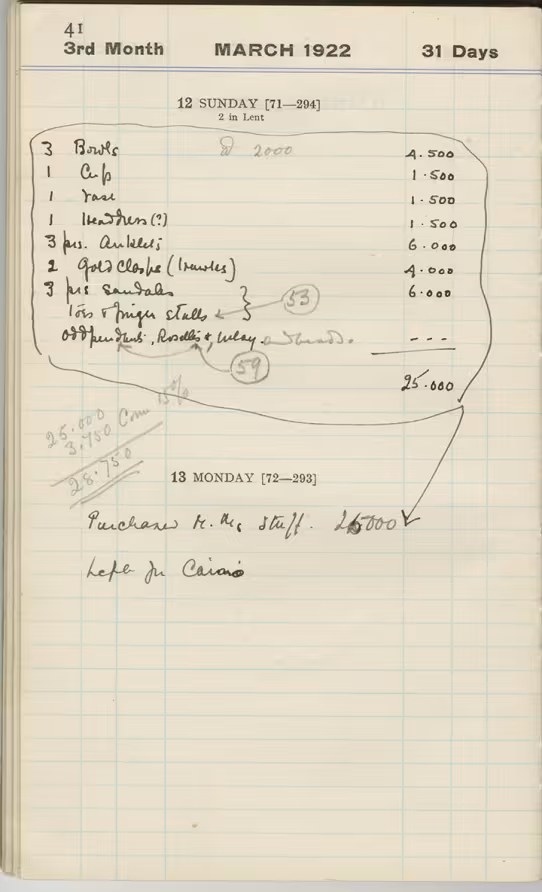 41
3rd Month MARCH 1922 31 Days
12 SUNDAY [71—294]
2 in Lent
3 Bowls @ 2000 4.500
1 Cup 1.500
1 Vase 1.500
1 Headdress (?) 1.500
3 prs. Anklets 6.000
2 Gold Clasps ( ) 4.000
3 prs Sandals 6.000
Toes & finger stalls 53
odd pendants, Rosettes, Inlay. and beads. ---
59
25.000
25.000
3.750 Com 15%
28.750
13 MONDAY [72—293]
Purchased stuff. 25000
Left for Cairo